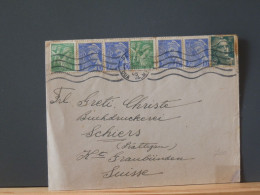 Frl. Greti Christe
Buchdruckerei
Schiers
(Prättigau)
Kt. Graubünden
Suisse